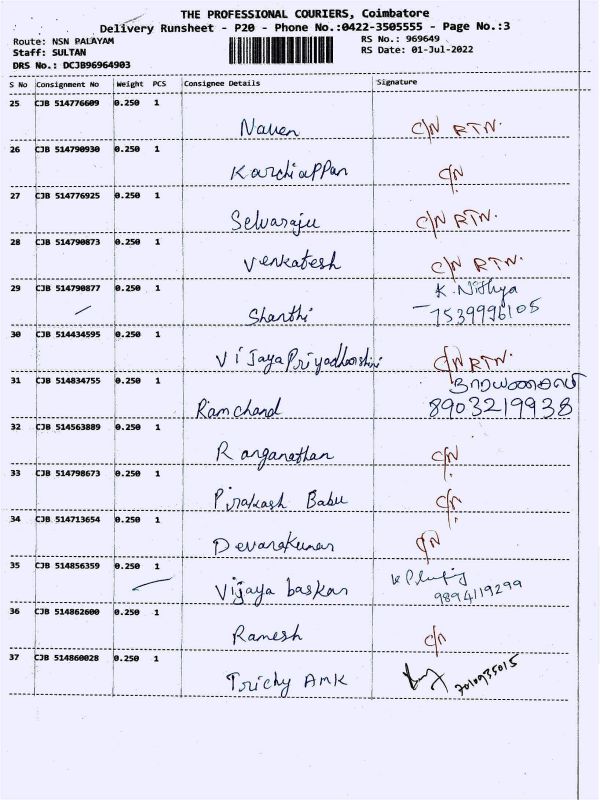 THE PROFESSIONAL COURIERS, Coimbatore
Delivery Runsheet - P20 - Phone No.:0422-3505555 - Page No.:3
Route: NSN PALAYAM RS No.: 969649
Staff: SULTAN RS Date: 01-Jul-2022
DRS No.: DCJB96964903
S No Consignment No Weight PCS Consignee Details Signature
25 CJB 514776609 0.250 1
Naven C/N RTN.
26 CJB 514790930 0.250 1
Karchiappan C/N
27 CJB 514776925 0.250 1
Selvaraju C/N RTN.
28 CJB 514790873 0.250 1
Venkatesh C/N RTN.
29 CJB 514790877 0.250 1 K. Nithya
Shanthi 7539996105
30 CJB 514434595 0.250 1
VijayaPriyadharshini C/N RTN.
31 CJB 514834755 0.250 1
Ramchand 8903219938
32 CJB 514563889 0.250 1
Ranganathan C/N
33 CJB 514798673 0.250 1
Pirakash Babu C/N
34 CJB 514713654 0.250 1
Devarakumar C/N
35 CJB 514856359 0.250 1
Vijaya baskar 9894119299
36 CJB 514862600 0.250 1
Ramesh C/N
37 CJB 514860028 0.250 1
Trichy AMK 7010935015